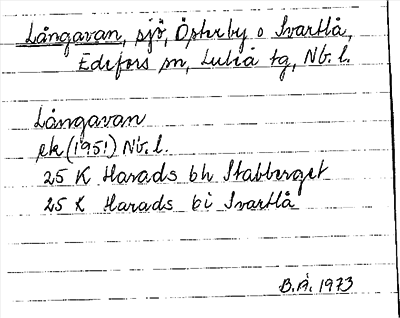 Långavan, sjö, Österby o Svartlå,
Edefors sn, Luleå tg, Nb. l.
Långavan
ek (1951) Nb. l.
25 K Harads bh Stabberget
25 K Harads bi Svartlå
B.Å. 1973